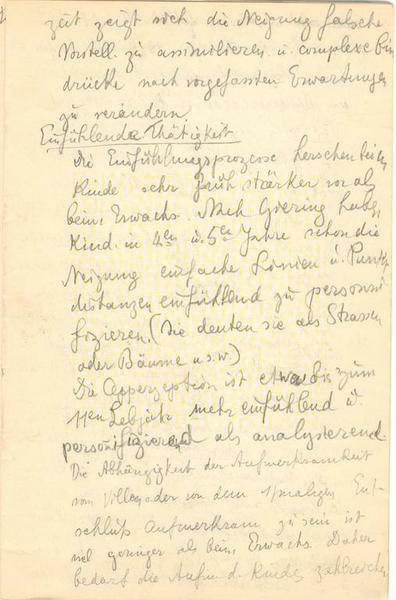 zeit zeigt sich die Neigung falsche
Vorstell. zu assimilieren u. complexe Ein
drücke nach vorgefassten Erwartungen
zu verändern.
Einfühlende Thätigkeit
Die Einfühlungsprozesse herschen beim
Kinde sehr früh stärker vor als
beim Erwachs. Nach Giering habe
Kind. in 4en u. 5en Jahre schon die
Neigung einfache Linien u. Punkt
distanzen einfühlend zu personi
fizieren. (Sie deuten sie als Strassen
oder Bäume u.s.w.)
Die Apperzeption ist etwa bis zum
11en Lebjahr mehr einfühlend u.
personifizierend als analysierend.
Die Abhängigkeit der Aufmerksamkeit
vom Willen oder von dem 1maligen Ent
schluß aufmerksam zu sein ist
viel geringer als beim Erwachs. Daher
bedarf die Aufm. d. Kindes zahlreicher